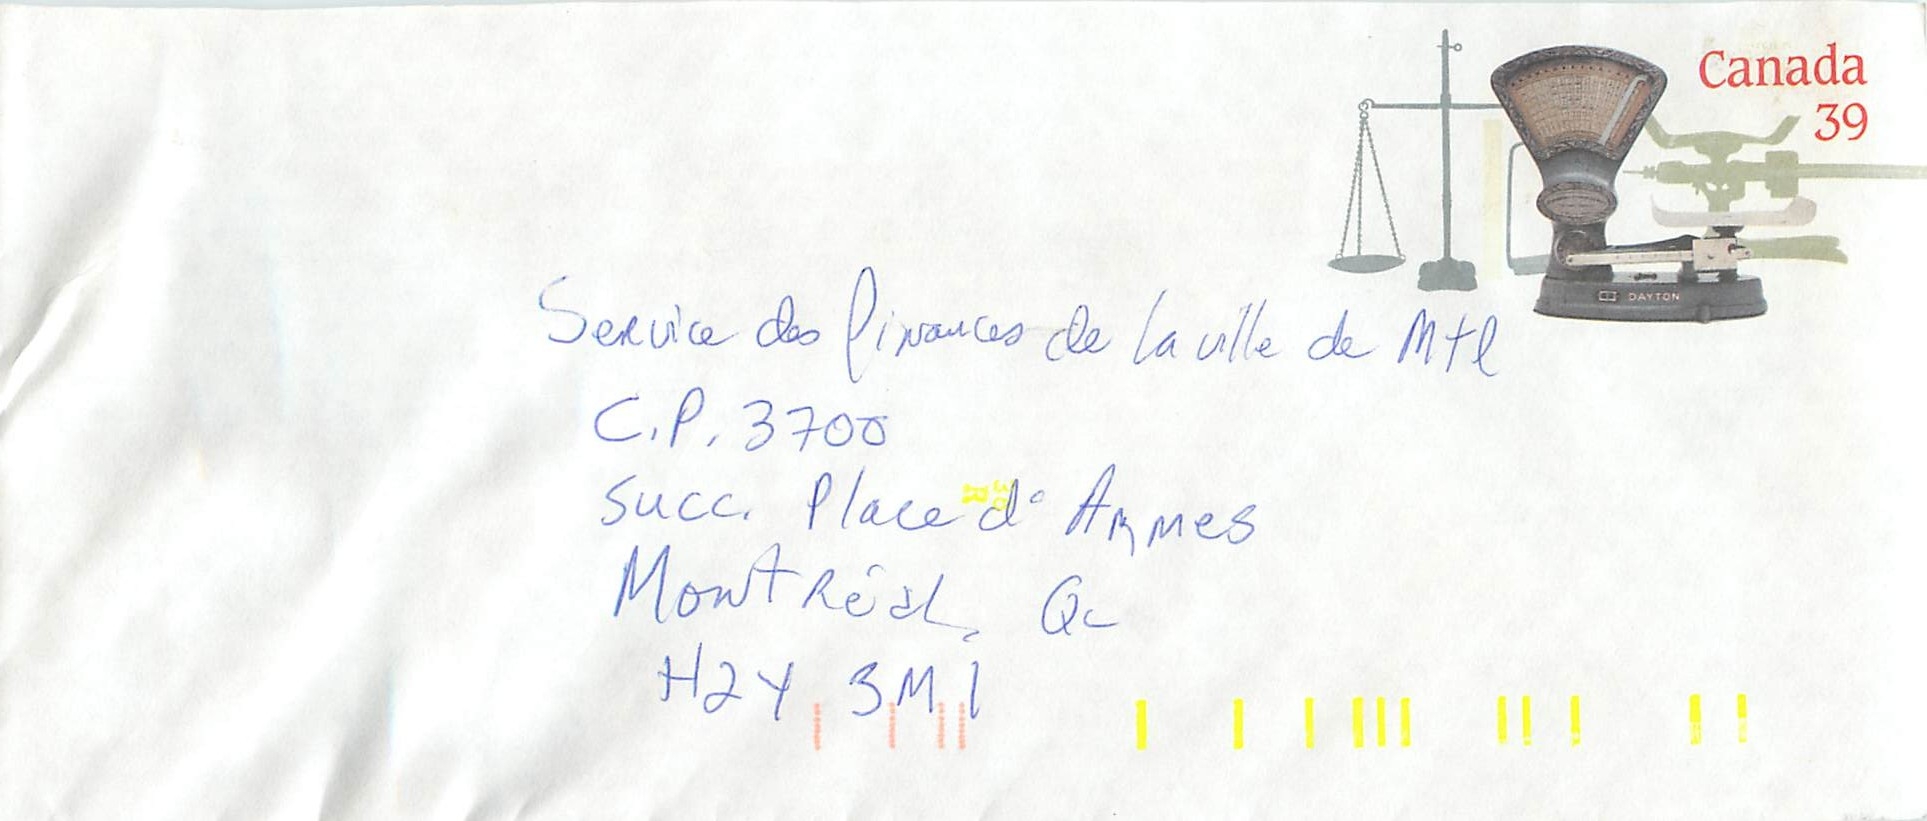 Canada
39
DAYTON
Service des finances de la ville de Mtl
C.P. 3700
Succ. Place d'Armes
30
R
Montréal, Qc
H2Y 3M1